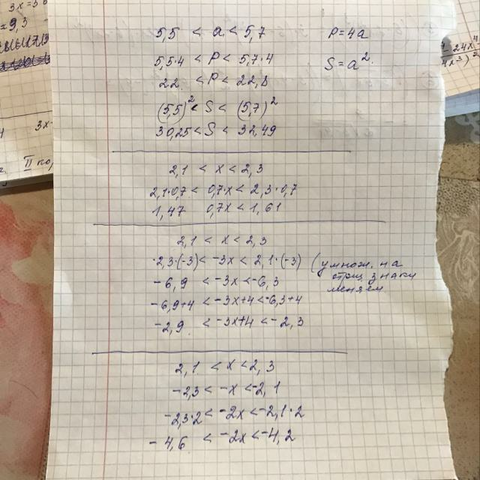 5,5 < a < 5,7 P=4a
5,5·4 < P < 5,7·4 S=a².
22 < P < 22,8
(5,5)² < S < (5,7)²
30,25 < S < 32,49
2,1 < x < 2,3
2,1·0,7 < 0,7x < 2,3·0,7
1,47 0,7x < 1,61
2,1 < x < 2,3
·2,3·(-3) < -3x < 2,1·(-3) (умнож. на
отриц знаки
меняем
-6,9 < -3x < -6,3
-6,9+4 < -3x+4 < -6,3+4
-2,9 < -3x+4 < -2,3
2,1 < x < 2,3
-2,3 < -x < -2,1
-2,3·2 < -2x < -2,1·2
-4,6 < -2x < -4,2